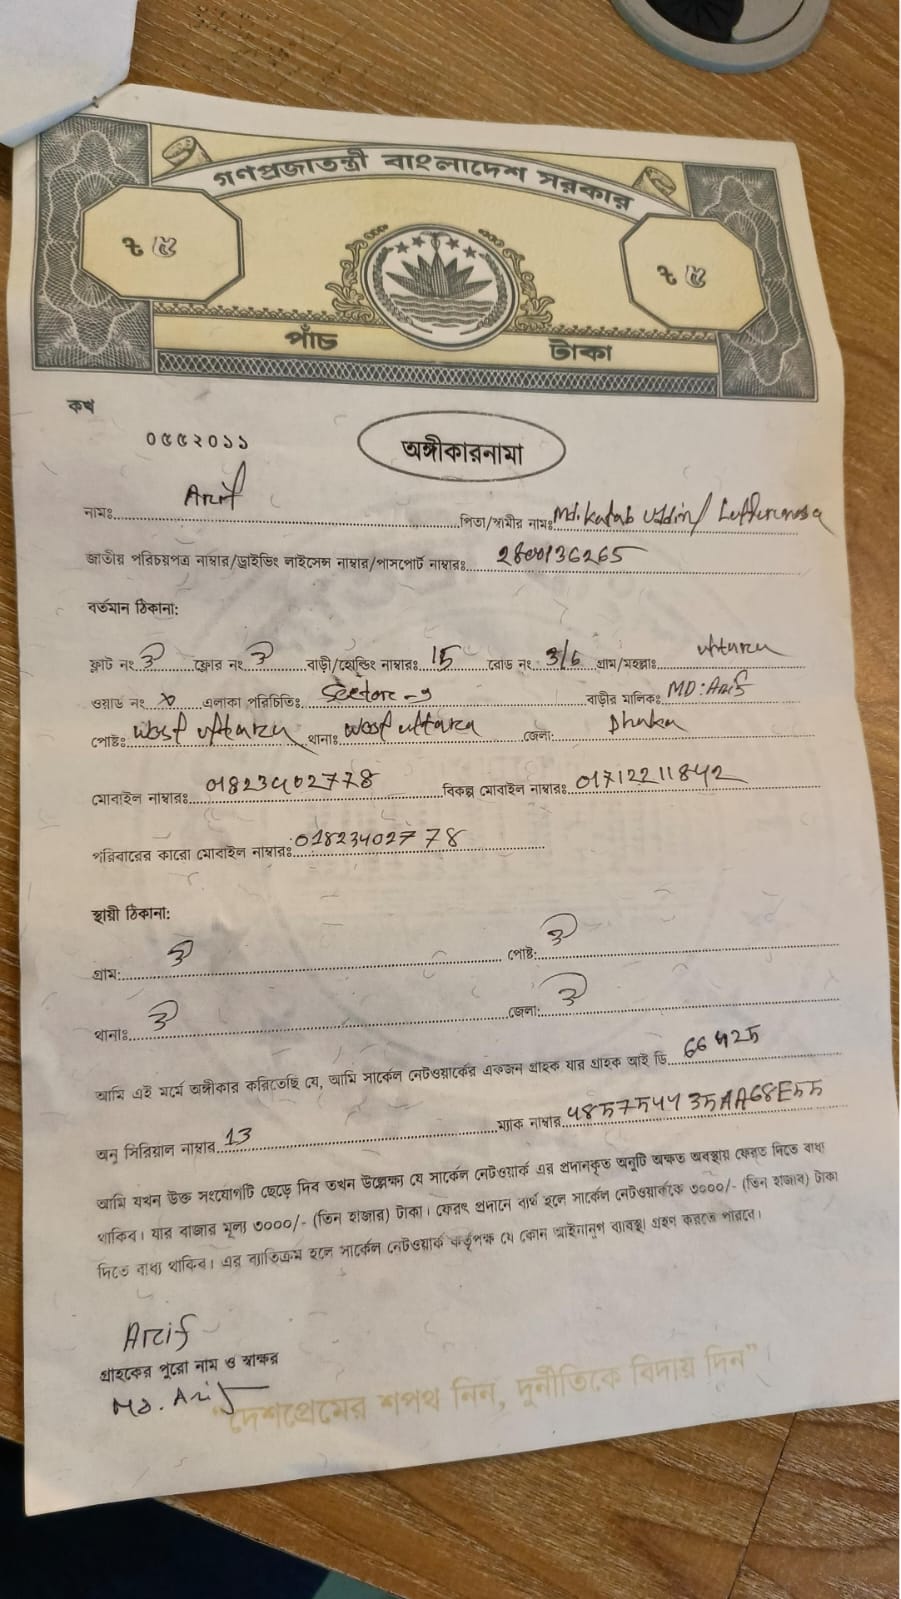 গণপ্রজাতন্ত্রী বাংলাদেশ সরকার
৳ ৫ ৳ ৫
পাঁচ টাকা
কখ
০৫৫২০১১
অঙ্গীকারনামা
নামঃ Arif পিতা/স্বামীর নামঃ Md. Kutab Uddin/
জাতীয় পরিচয়পত্র নাম্বার/ড্রাইভিং লাইসেন্স নাম্বার/পাসপোর্ট নাম্বারঃ 2800136265
বর্তমান ঠিকানা:
ফ্লাট নং ফ্লোর নং বাড়ী/হোল্ডিং নাম্বারঃ 15 রোড নং 3/6 গ্রাম/মহল্লাঃ uttara
ওয়ার্ড নং x এলাকা পরিচিতিঃ বাড়ীর মালিকঃ MD: Arif
পোষ্টঃ West uttara থানাঃ West uttara জেলা: Dhaka
মোবাইল নাম্বারঃ 01823402778 বিকল্প মোবাইল নাম্বারঃ 01712211842
পরিবারের কারো মোবাইল নাম্বারঃ 01823402778
স্থায়ী ঠিকানা:
গ্রাম: পোষ্ট:
থানাঃ জেলা:
আমি এই মর্মে অঙ্গীকার করিতেছি যে, আমি সার্কেল নেটওয়ার্কের একজন গ্রাহক যার গ্রাহক আই ডি
অনু সিরিয়াল নাম্বার 13 ম্যাক নাম্বার
আমি যখন উক্ত সংযোগটি ছেড়ে দিব তখন উল্লেক্ষ্য যে সার্কেল নেটওয়ার্ক এর প্রদানকৃত অনুটি অক্ষত অবস্থায় ফেরত দিতে বাধ্য
থাকিব। যার বাজার মূল্য ৩০০০/- (তিন হাজার) টাকা। ফেরৎ প্রদানে ব্যর্থ হলে সার্কেল নেটওয়ার্ককে ৩০০০/- (তিন হাজার) টাকা
দিতে বাধ্য থাকিব। এর ব্যতিক্রম হলে সার্কেল নেটওয়ার্ক কর্তৃপক্ষ যে কোন আইনানুগ ব্যবস্থা গ্রহণ করতে পারবে।
Arif
গ্রাহকের পুরো নাম ও স্বাক্ষর
MD. Arif
"দেশপ্রেমের শপথ নিন, দুর্নীতিকে বিদায় দিন"